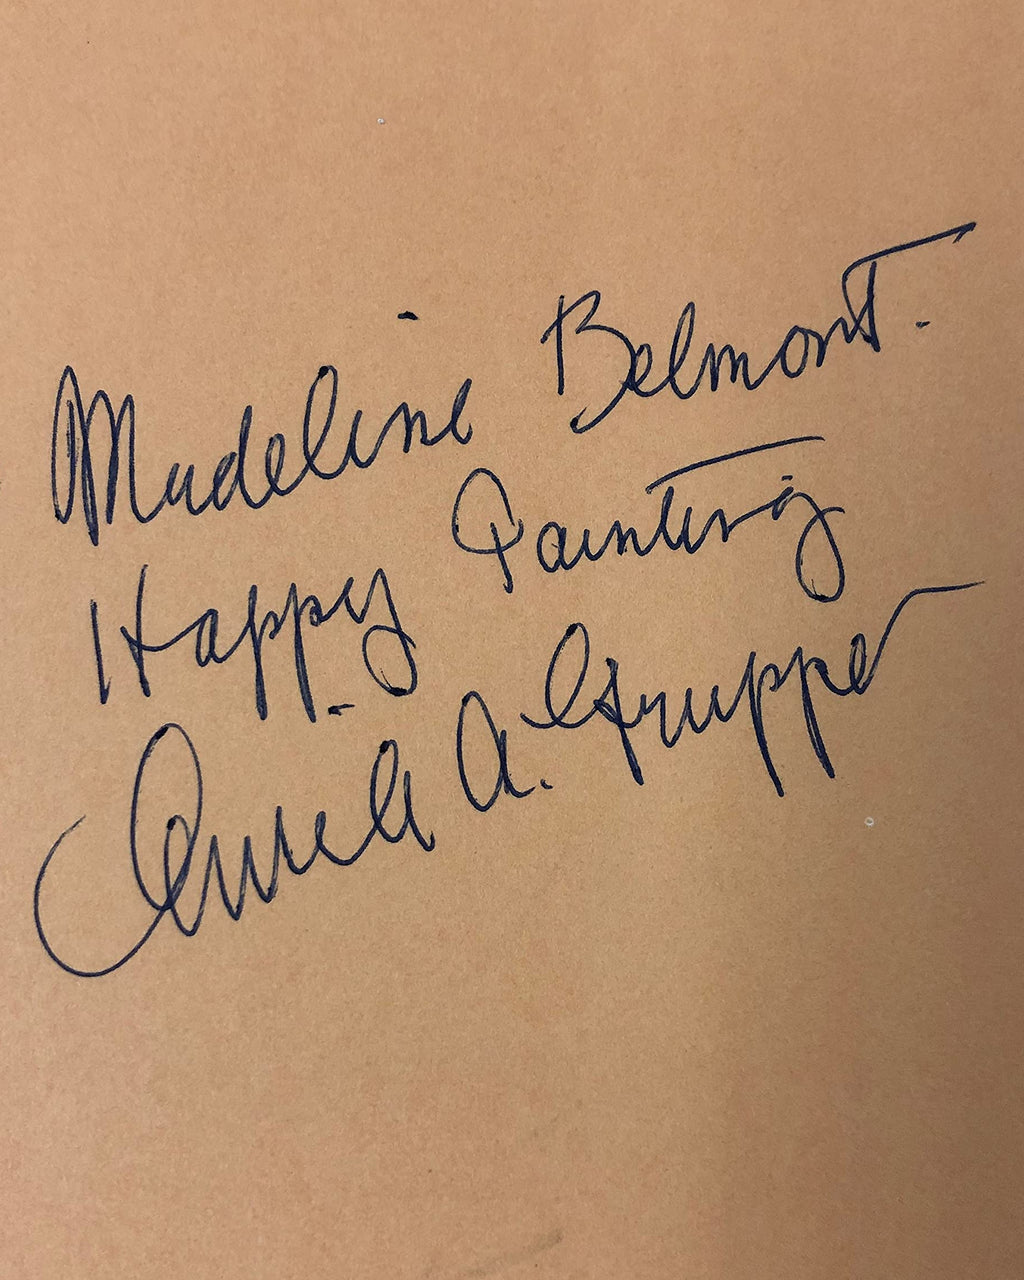 Madeline Belmont.
Happy Painting
Emile A. Gruppe